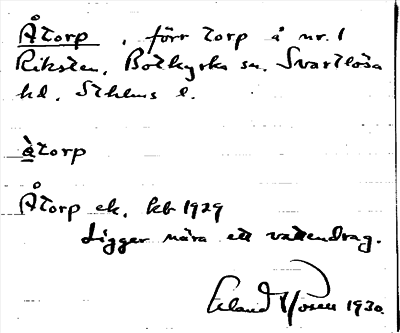 Åtorp, förr torp å nr. 1
Riksten, Botkyrka sn. Svartlösa
hd. Sthlms l.
àtorp
Åtorp ek. kb 1929
Ligger nära ett vattendrag.
Erland Rosell 1930.